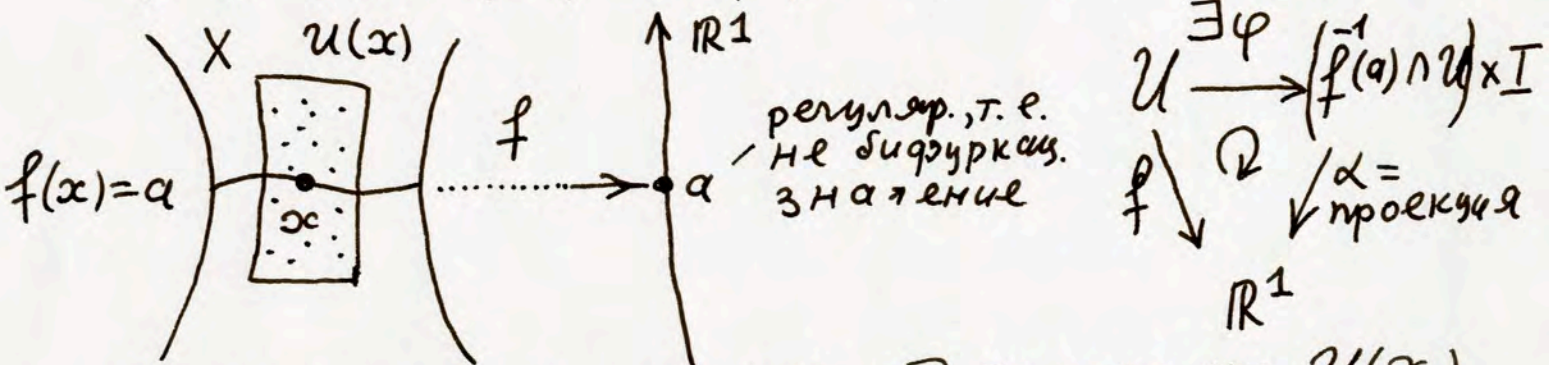 X U(x)
f(x)=a
x
f
ℝ1
a
регуляр., т. е.
не бифуркац.
значение
∃φ
U → (f⁻¹(a) ∩ U) × I
f
α =
проекция
ℝ1
U(x)